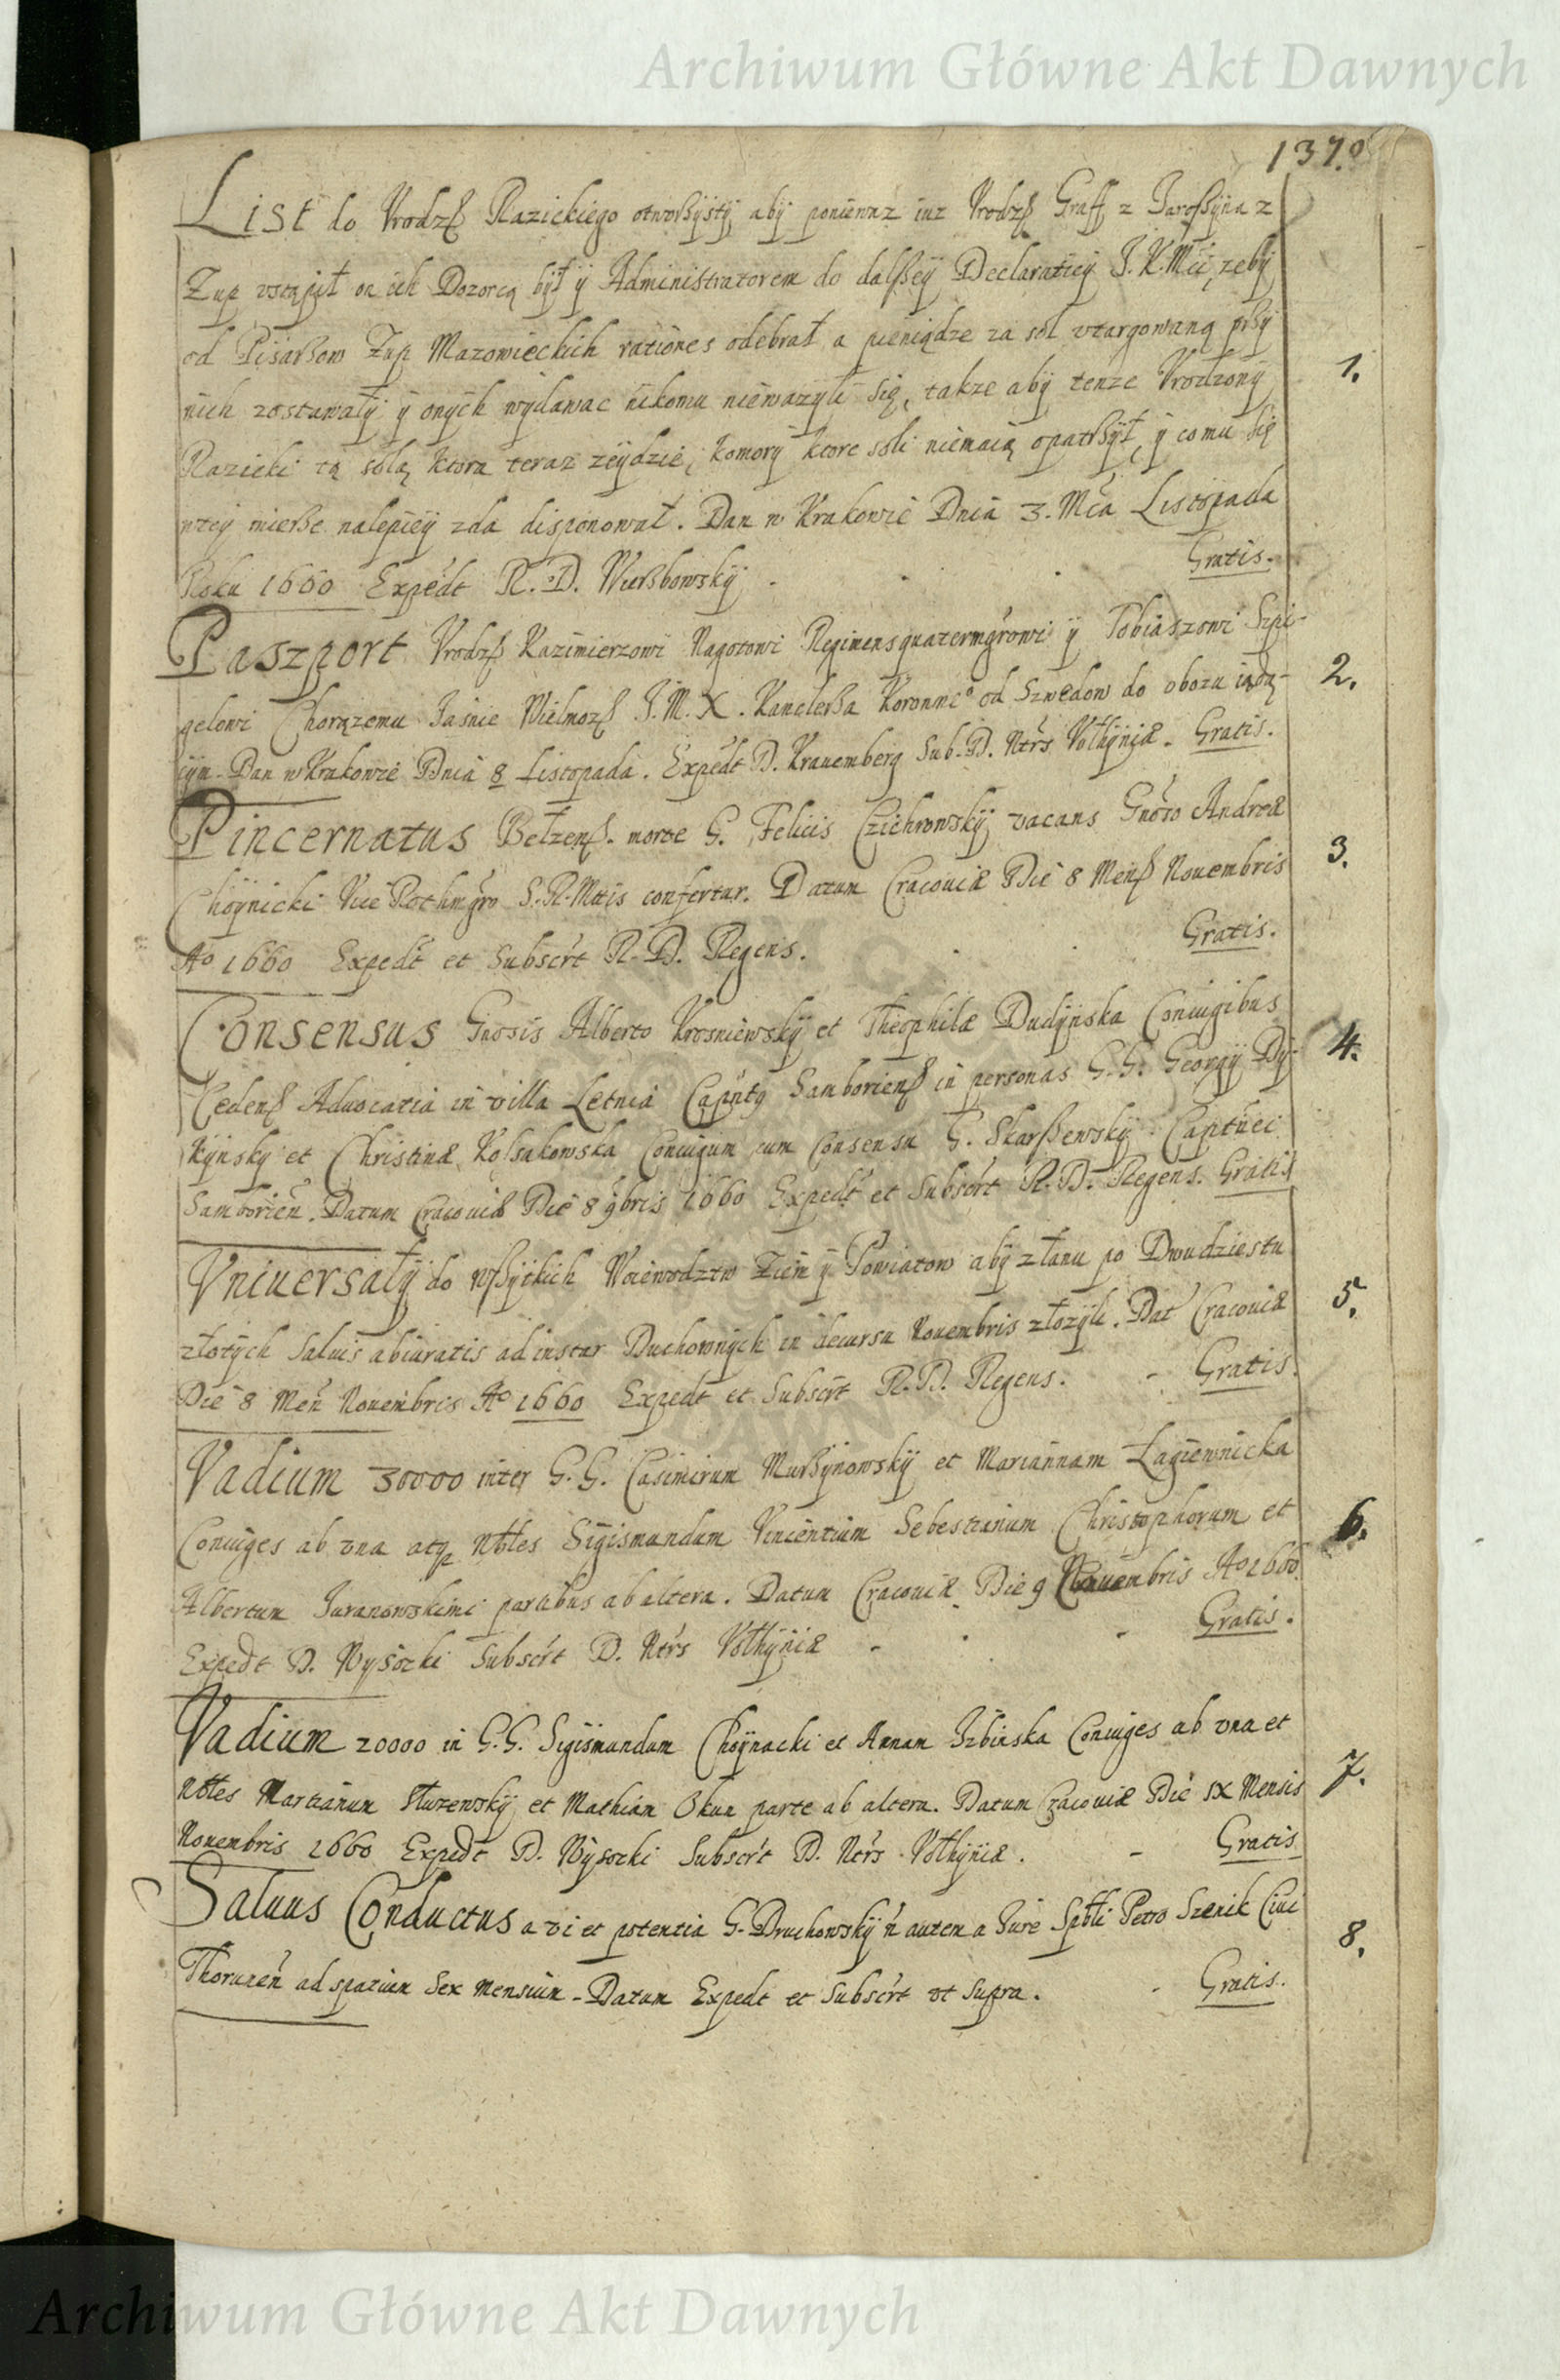 Archiwum Główne Akt Dawnych
137.
List do Vrodzß Razickiego otworßysty aby poniewaz iuz Vrodzß Graff z Jaroßyna z
Zup vstąpił on ich Dozorcą był y Administratorem do dalßey Declaratiey J. K. Mci, zeby
od Pisarßow Zup Mazowieckich rationes odebrał a pieniądze za sol vtargowaną prßy
nich zostawały y onych wydawac nikomu niewazyli się, takze aby tenze Vrodzony
Razicki tą solą ktora teraz zeydzie, komory ktore soli niemaią opatrßył, y comu się
wtey mierße nalepiey zda disponował. Dan w Krakowie Dnia 3. Mca Listopada
Roku 1660 Expedt R. D. Wierßbowsky. Gratis.
Paszport Vrodzß Kazimierzowi Nagotowi Regimensquatermgrowi y Tobiaszowi Szpi-
gelowi Chorązemu Jasnie Wielmozß J. M. X. Kanclerßa Koronneo od Szwedow do obozu iądą-
cym. Dan w Krakowie Dnia 8 Listopada. Expedt D. Kranemberg Sub. D. Ntrs Vołhyniæ. Gratis.
Pincernatus Bełzenß. morte G. Felicis Czichrowsky vacans Gnoso Andreæ
Choynicki Vice Rothmgro S. R. Mtis confertur. Datum Cracouiæ Die 8 Menß Nouembris
Ao 1660 Expedt et Subscrt R. D. Regens. Gratis.
Consensus Gnosis Alberto Krosniewsky et Theophilæ Dudynska Coniugibus
Cedenß Aduocatia in villa Letnia Capntq Samborienß in personas G. G. Georgy Dy-
kynsky et Christinæ Kolsakowska Coniugum cum Consensu G. Skarßewsky Captnei
Samborien. Datum Cracouiæ Die 8 9bris 1660 Expedt et Subscrt R. D. Regens. Gratis
Vniuersały do wßytkich Woiewodztw Ziem y Powiatow aby z łanu po Dwudziestu
złotych Saluis abiuratis ad instar Duchownych in decursu Nouembris złozyli. Dat Cracouiæ
Die 8 Men Nouembris Ao 1660 Expedt et Subscrt R. D. Regens. Gratis.
Vadium 30000 inter G. G. Casimirum Murßynowsky et Mariannam Łagiewnicka
Coniuges ab vna atq Nbles Sigismundum Vincentium Sebestianum Christophorum et
Albertum Juranowskimi partibus ab altera. Datum Cracouiæ Die 9 Nouembris Ao 1660.
Expedt D. Wysocki Subscrt D. Ntrs Vołhyniæ Gratis.
Vadium 20000 in G. G. Sigismundum Choynacki et Annam Izbinska Coniuges ab vna et
Nbles Martianum Służewsky et Mathian Okun parte ab altera. Datum Cracouiæ Die IX Mensis
Nouembris 1660 Expedt D. Wysocki Subscrt D. Ntrs Vołhyniæ. Gratis
Saluus Conductus a vi et potentia G. Druchowsky n autem a Jure Spbli Petro Szenik Ciui
Thorunen ad spatium Sex mensium. Datum Expedt et Subscrt vt Supra. Gratis.
1.
2.
3.
4.
5.
6.
7.
8.
Archiwum Główne Akt Dawnych